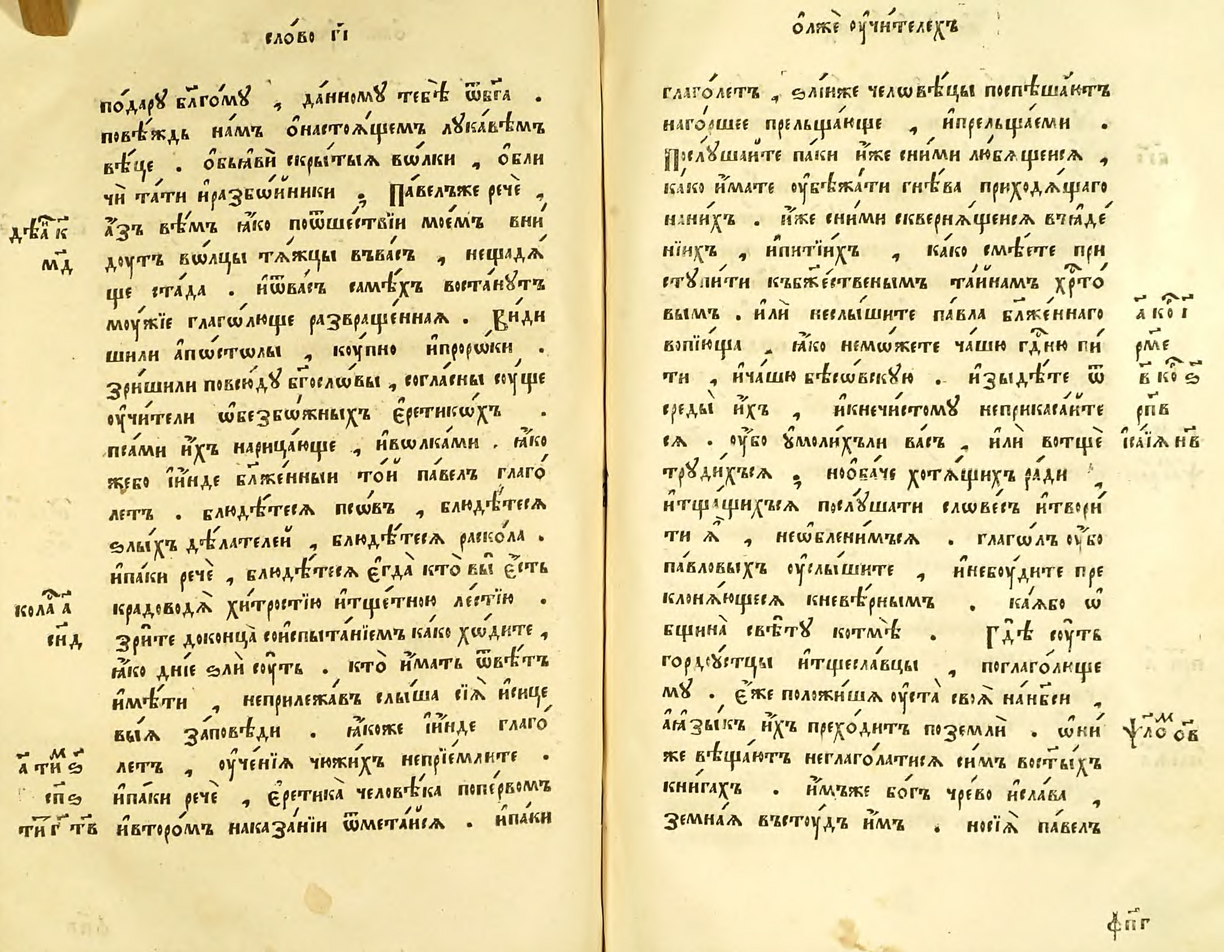 сло́во г҃і
по́дару бл҃го́му , да́нному тебѣ̀ ѿбг҃а .
повѣ́ждь на́мъ ѻ҆настоѧ́щемъ лука́вѣмъ
вѣ́це . ѻ҆бьꙗвѝ скры́тыѧ вѡ́лки , ѻ҆бли
чѝ та́ти и҆разбѡ́йники ; Па́велъже речѐ ,
дѣꙗ҃ к
а҆́зъ вѣ́мъ ꙗ҆́ко поѿше́ствїи мое́мъ вни́
м҃д
доутъ вѡ́лцы тѧ́жцы въва́съ , нещадѧ́
ще ста́да . и҆ѿва́съ самѣ́хъ воста́нутъ
моу́жїе глаго́люще развраще́ннаѧ . Види
шили а҆пѡ́столы , коу́пно и҆проро́ки .
Зри́шили повсю́ду бг҃осло́вы , согла́сны соу́ще
оу҆чи́тели ѡ҆безбѡ́жныхъ є҆ретикѡ́хъ .
пса́ми и҆́хъ нарица́юще , и҆во́лками . ꙗ҆́ко
жебо і҆и́нде бл҃же́нныи то́й па́велъ глаго́
летъ . блюдѣ́тесѧ псѡ́въ , блюдѣ́тесѧ
ѕлы́хъ дѣ́лателей , блюдѣ́тесѧ раско́ла .
и҆па́ки речѐ , блюдѣ́тесѧ є҆гда̀ кто̀ вы̀ є҆́сть
кола҃ а҃
крадоводѧ̀ хи́тростїю и҆тще́тною ле́стїю .
сн҃д
зри́те доконца̀ соиспыта́нїемъ ка́ко хо́дите ,
ꙗ҆́ко дні́е ѕлѝ соу́ть . кто̀ и҆́мать ѿвѣ́тъ
и҆мѣ́ти , неприлежа́въ слы́ша сїѧ̀ и҆сице
вы́ѧ за́повѣди . ꙗ҆́коже і҆и́нде глаго́
а҃ тим҃ ѕ҃
летъ , оу҆че́нїѧ чюжи́хъ непрїе́млите .
сп҃ѕ
и҆па́ки речѐ , є҆ретика̀ человѣ́ка попе́рвомъ
ти҃ г҃ тв҃
и҆второ́мъ наказа́нїи ѿмета́йсѧ . и҆па́ки
ѻ҆лжѐ оу҆чи́телехъ
глаго́летъ , ѕлі́иже человѣ́цы поспѣша́ютъ
наго́ршее прельща́юще , и҆прельща́еми .
Послу́шайте па́ки и҆́же сни́ми любѧ́щеисѧ ,
ка́ко и҆́мате оу҆бѣжа́ти гнѣ́ва приходѧ́щаго
нани́хъ . и҆́же сни́ми скверна́щеисѧ въꙗде́
нїихъ , и҆питїи́хъ , ка́ко смѣ́ете при
ступи́ти къбж҃е́ственымъ та́йнамъ хр҃то́
вымъ . и҆лѝ неслы́шите па́вла бл҃же́ннаго
а҃ ко҃ і҃
вопїю́ща , ꙗ҆́ко немо́жете ча́шю гд҃ню пи́
рм҃е
ти , и҆ча́шю бѣсо́вскую . и҆зыдѣ́те ѿ
в҃ ко҃ ѕ҃
среды̀ и҆́хъ , и҆кнечи́стому неприкаса́йте
рп҃в
сѧ . оу҆́бо у҆моли́хъли ва́съ , и҆лѝ вотщѐ
і҆са́їѧ нв҃
труди́хъсѧ ; нооба́че хотѧ́щихъ ра́ди ,
и҆тща́щихъсѧ послу́шати слове́съ и҆твори́
ти ѧ҆̀ , неѡбленимъсѧ . глаго́лъ оу҆́бо
па́вловыхъ оу҆слы́шите , и҆небоу́дите пре
клонѧ́ющесѧ кневѣ́рнымъ . ка́ѧбо ѡ҆́
бщина свѣ́ту котмѣ̀ . Гдѣ̀ соу́ть
гордоустцы и҆тщесла́вцы , поглаго́лище
му . є҆́же положи́шѧ оу҆ста̀ своѧ̀ нанб҃си ,
а҆ꙗзы́къ и҆́хъ прехо́дитъ поземлѝ . ѡ҆ни́
ѱло҃м о҃в
же вѣща́ютъ неглаго́латисѧ си́мъ восты҃хъ
кни́гахъ . и҆́мъже бо́гъ чре́во и҆сла́ва ,
земна́ѧ въстоу́дъ и҆́мъ . носїѧ̀ па́велъ
фп҃г